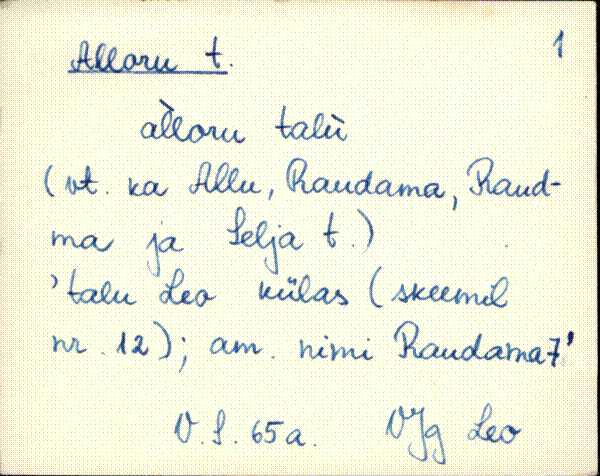 Alloru t. 1
àlloru talù
(vt. ka Allu, Raudama, Raud-
ma ja Selja t.)
'talu Leo külas (skeemil
nr. 12); am. nimi Raudama 7'
V. S. 65a. VJg Leo